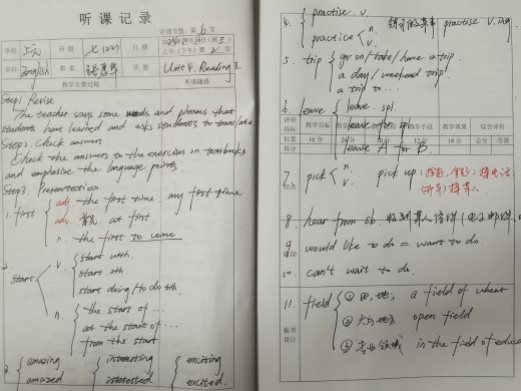 听课记录
听课节数: 第 6 节
学校 上元 班级 七(22) 日期
上午(下午) 第 2 节
学科 English 教者 课题 Unit 4 Reading I
教学主要过程 听课随感
Step1. Revise
The teacher says some words and phrases that
students have learned and asks students to translate
Step2. Check answers.
Check the answers to the exercises in textbooks
and emphasise the language points.
Step3. Presentation
1. first adj. the first time my first time
adv. 首先 at first
n. the first to come
2. start v. start with.
start sth.
start doing/to do sth
n. the start of ...
at the start of ...
from the start
3. amazing interesting exciting
amazed interested excited.
4. practise v.
practice n. v. practise v.ing
5. trip go on/take/have a trip.
a day/weekend trip.
a trip to ...
6. leave leave spl.
leave for spl.
leave A for B.
评价指标 教学目标 教学手段 教学效果 综合评价
权重
得分
7. pick n. v. pick up:
8. hear from sb. 收到某人信件(电子邮件、
9. would like to do = want to do.
10. can't wait to do.
11. field ① 田地; a field of wheat
② open field
③ 专业领域 in the field of educa
板书设计